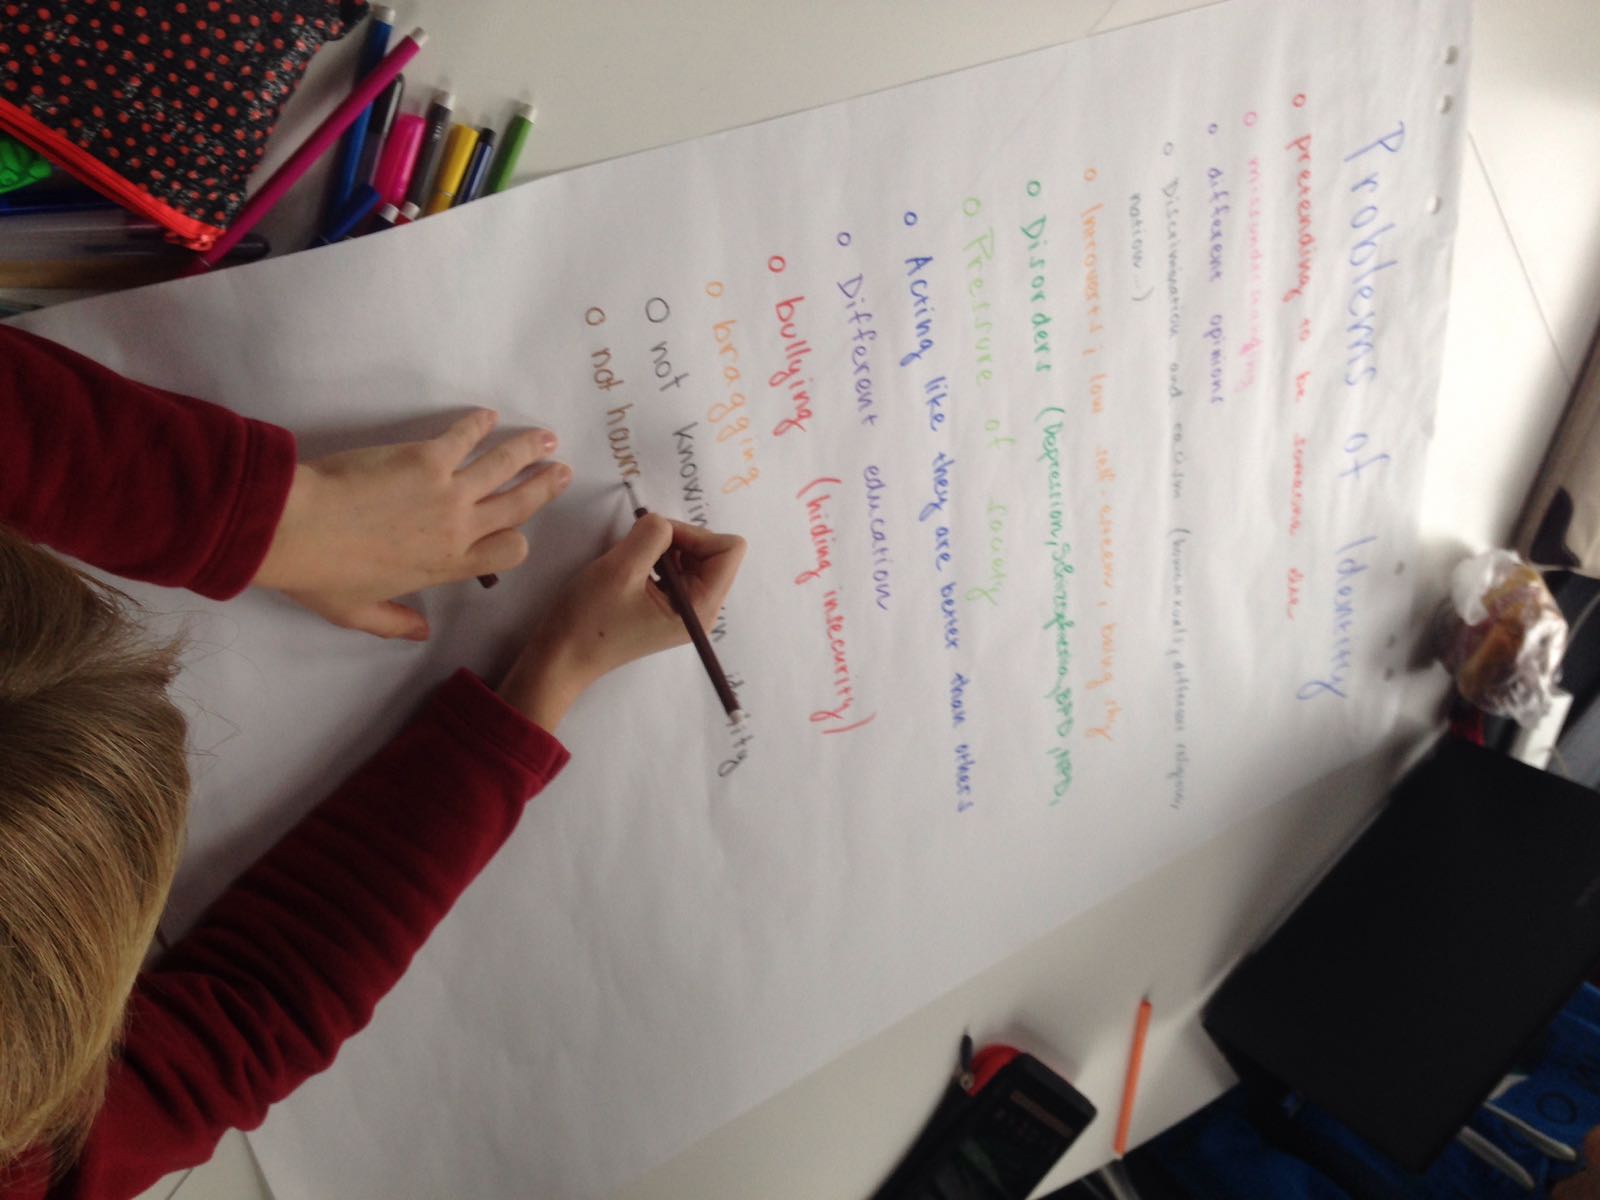 Problems of Identity
o pretending to be someone else
o missunderstanding
o different opinions
o Discrimination and racism (homosexuals, different religion,
nation...)
o Introverts, low self-esteem, being shy
o Disorders (Depression, Schizophrenia, BPD,
o Pressure of society
o Acting like they are better than others
o Different education
o bullying (hiding insecurity)
o bragging
o not knowing own identity
o not havin